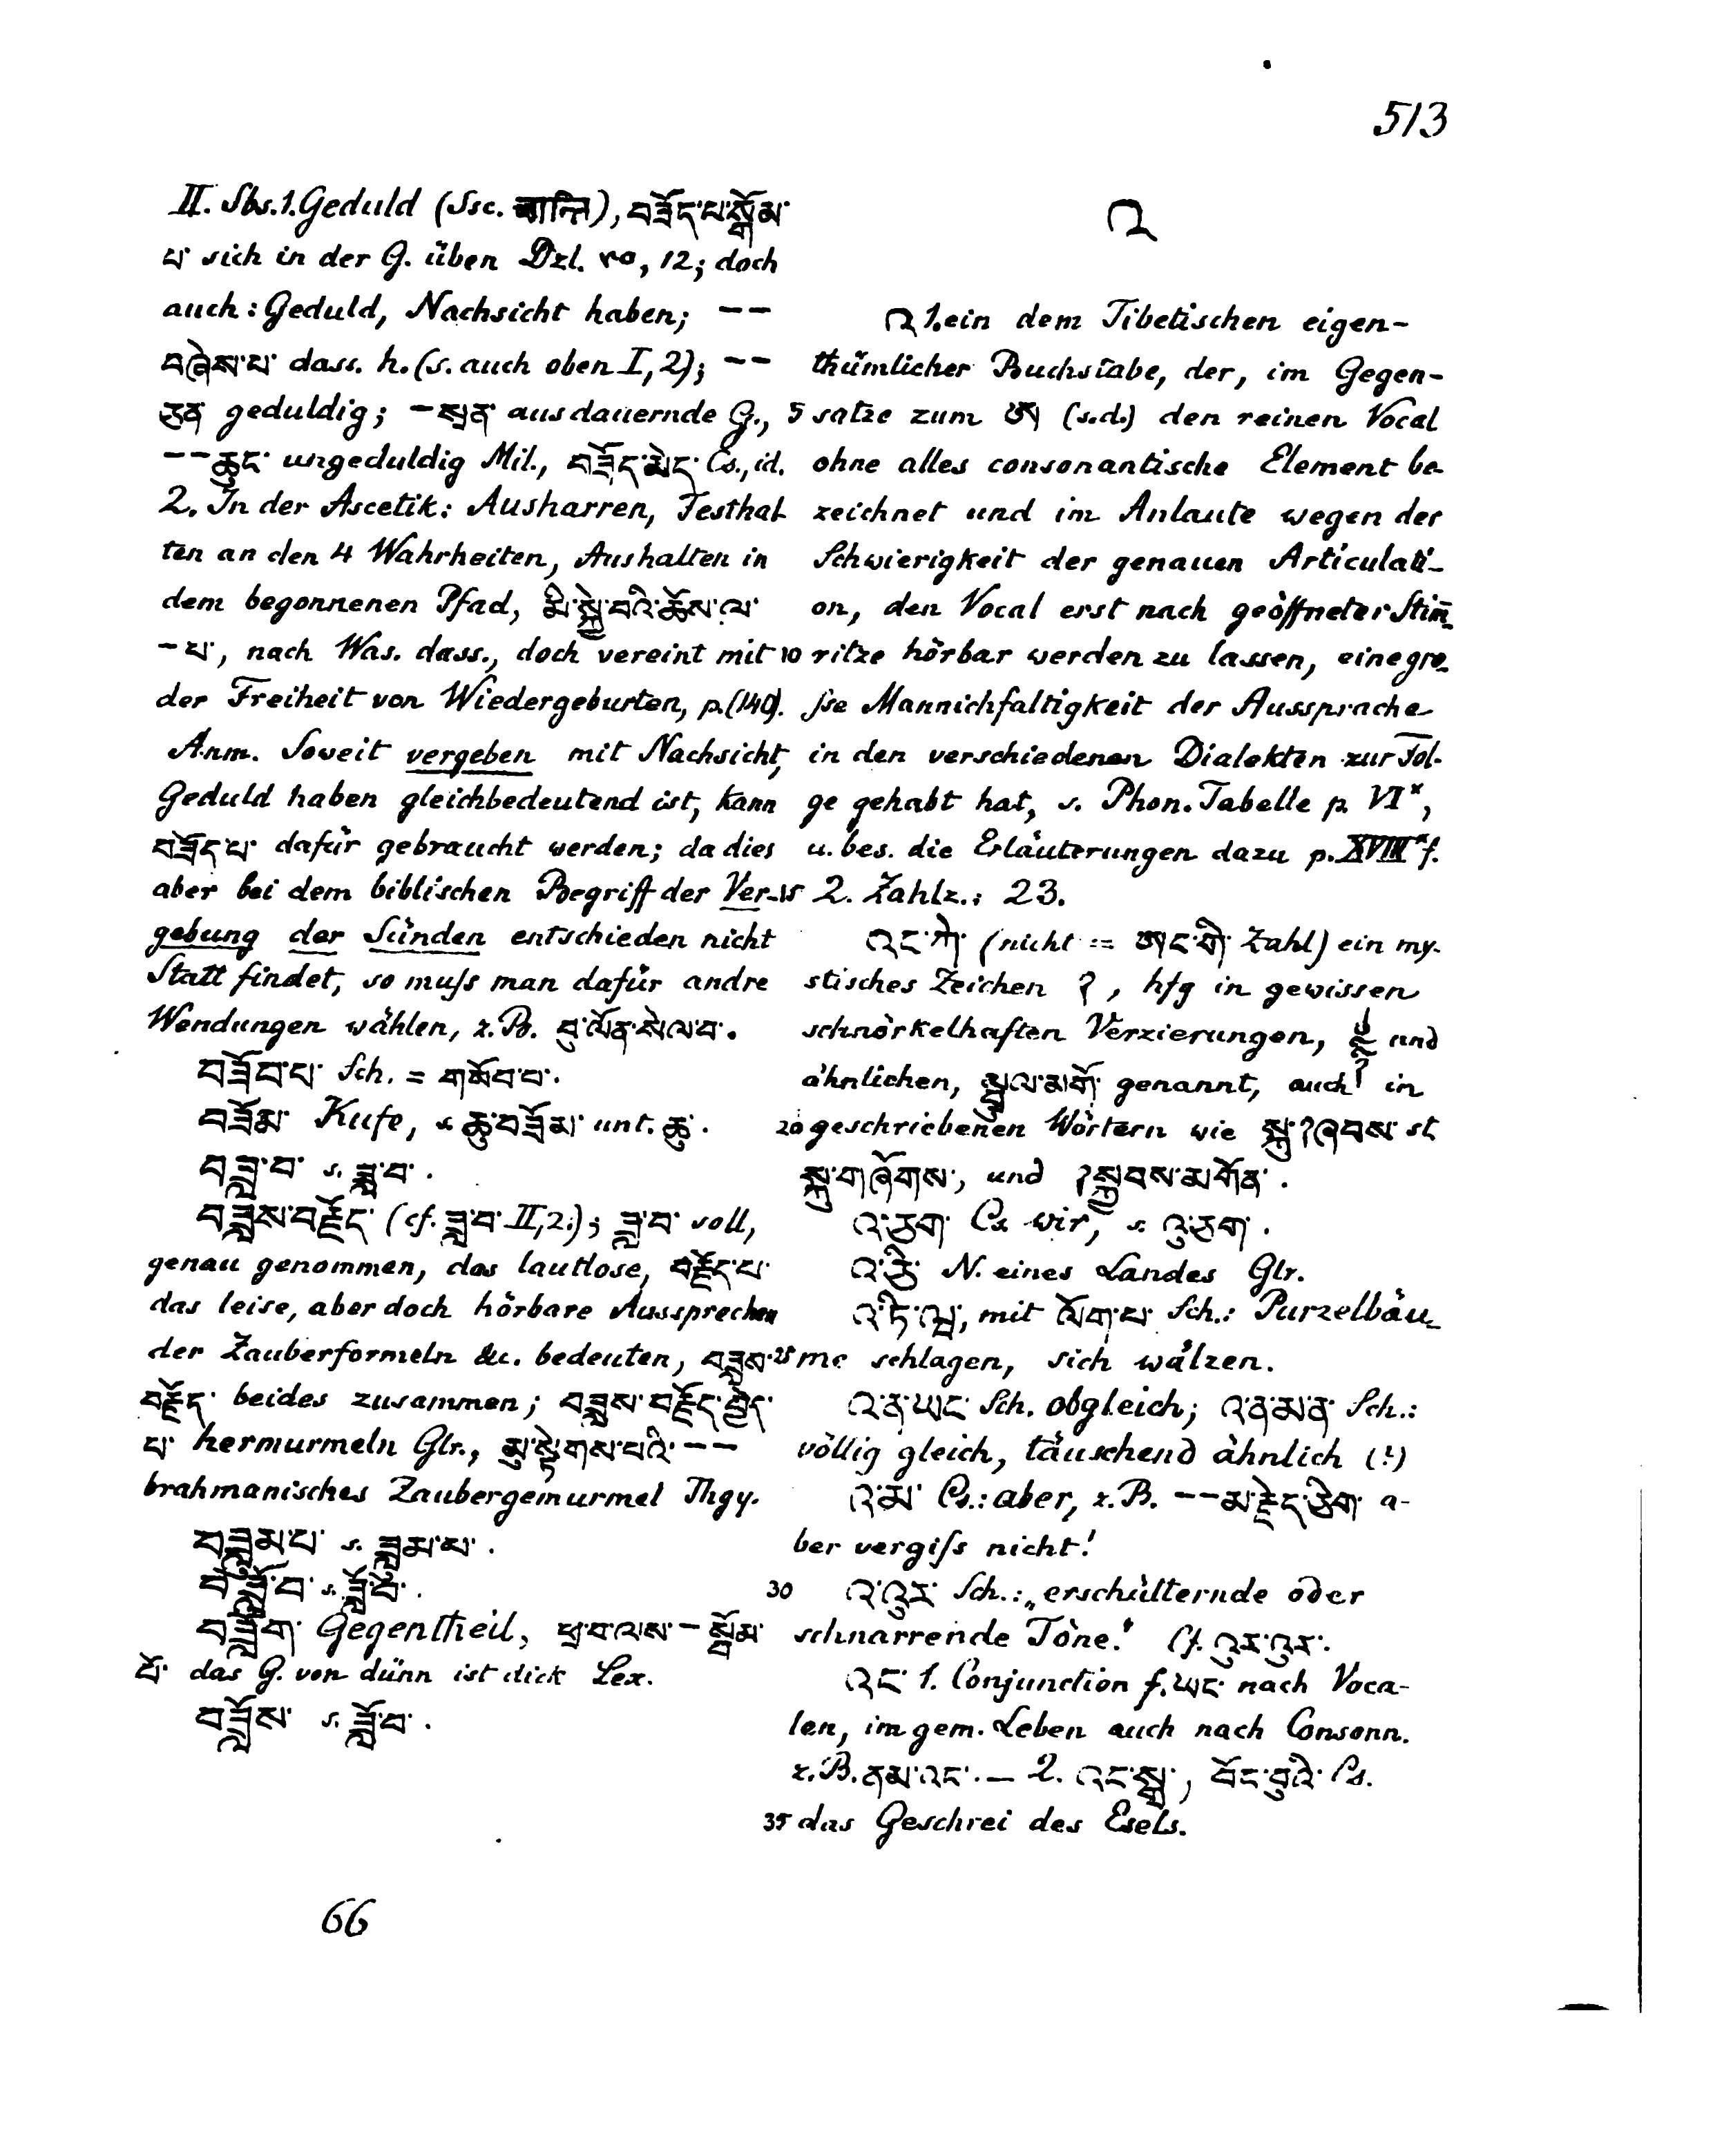 513
II. Sbs. 1. Geduld (Ssc. क्षान्ति), བཟོད་པ་སྒོམ་
པ་ sich in der G. üben Dzl. ༧༠, 12; doch
auch: Geduld, Nachsicht haben; --
བཞེས་པ་ dass. h. (s. auch oben I, 2); --
ཅན་ geduldig; -སྲན་ ausdauernde G.,
--ཆུང་ ungeduldig Mil., བཟོད་མེད་ Cs., id.
2. In der Ascetik: Ausharren, Festhal-
ten an den 4 Wahrheiten, Aushalten in
dem begonnenen Pfad, མི་སྐྱེ་བའི་ཆོས་ལ་
-པ་, nach Was. dass., doch vereint mit
der Freiheit von Wiedergeburten, p. (140).
Anm. Soweit vergeben mit Nachsicht,
Geduld haben gleichbedeutend ist, kann
བཟོད་པ་ dafür gebraucht werden; da dies
aber bei dem biblischen Begriff der Ver-
gebung der Sünden entschieden nicht
Statt findet, so muſs man dafür andre
Wendungen wählen, z. B. བུ་ལོན་སེལ་བ་.
བཟོབ་པ་ Sch. = གཟོབ་པ་.
བཟོམ་ Kufe, s. ཆུ་བཟོམ་ unt. ཆུ་.
བཟླ་བ་ s. ཟླ་བ་.
བཟླས་བརྗོད་ (cf. ཟླ་བ་ II, 2.); ཟླ་བ་ soll,
genau genommen, das lautlose, བརྗོད་པ་
das leise, aber doch hörbare Aussprechen
der Zauberformeln &c. bedeuten, བཟླས་
བརྗོད་ beides zusammen; བཟླས་བརྗོད་བྱེད་
པ་ hermurmeln Glr., མུ་སྟེགས་པའི་--
brahmanisches Zaubergemurmel Thgy.
བཟླུམ་པ་ s. ཟླུམ་པ་.
བཟློ་བ་ s. ཟློ་བ་.
བཟློག་ Gegentheil, ཕྲ་བ་ལས་-སྦོམ་
པོ་ das G. von dünn ist dick Lex.
བཟློས་ s. ཟློ་བ་.
66
འ
འ 1. ein dem Tibetischen eigen-
thümlicher Buchstabe, der, im Gegen-
5 satze zum ཨ (s.d.) den reinen Vocal
ohne alles consonantische Element be-
zeichnet und im Anlaute wegen der
Schwierigkeit der genauen Articulati-
on, den Vocal erst nach geöffneter Stim̄-
10 ritze hörbar werden zu lassen, eine gro-
ſse Mannichfaltigkeit der Aussprache
in den verschiedenen Dialekten zur Fol-
ge gehabt hat, s. Phon. Tabelle p. VIˣ,
u. bes. die Erläuterungen dazu p. XVIIIˣ f.
15 2. Zahlz.: 23.
འང་ཀེ་ (nicht = ཨང་གི་ Zahl) ein my-
stisches Zeichen ?, hfg in gewissen
schnörkelhaften Verzierungen, und
ähnlichen, སྦྲུལ་མགོ་ genannt, auch in
20 geschriebenen Wörtern wie སྐུ་?ཞབས་ st
སྐུ་གཞོགས་, und ?སྐྱབས་མགོན་.
འ་ཅག་ Cs. wir, s. འུ་ཅག་.
འ་ཅི་ N. eines Landes Glr.
འ་ཏི་ལྦ་, mit ལོག་པ་ Sch.: Purzelbäu-
25 me schlagen, sich wälzen.
འ་ན་ཡང་ Sch. obgleich; འ་ན་མ་ན་ Sch.:
völlig gleich, täuschend ähnlich (?)
འ་མ་ Cs.: aber, z. B. --མ་རྗེད་ཅིག་ a-
ber vergiſs nicht!
30 འ་འུར་ Sch.: „erschütternde oder
schnarrende Töne." Cf. འུར་འུར་.
འང་ 1. Conjunction f. ཡང་ nach Voca-
len, im gem. Leben auch nach Consonn.
z. B. ནམ་འང་. — 2. འང་སྒྲ་, བོང་བུའི་ Cs.
35 das Geschrei des Esels.